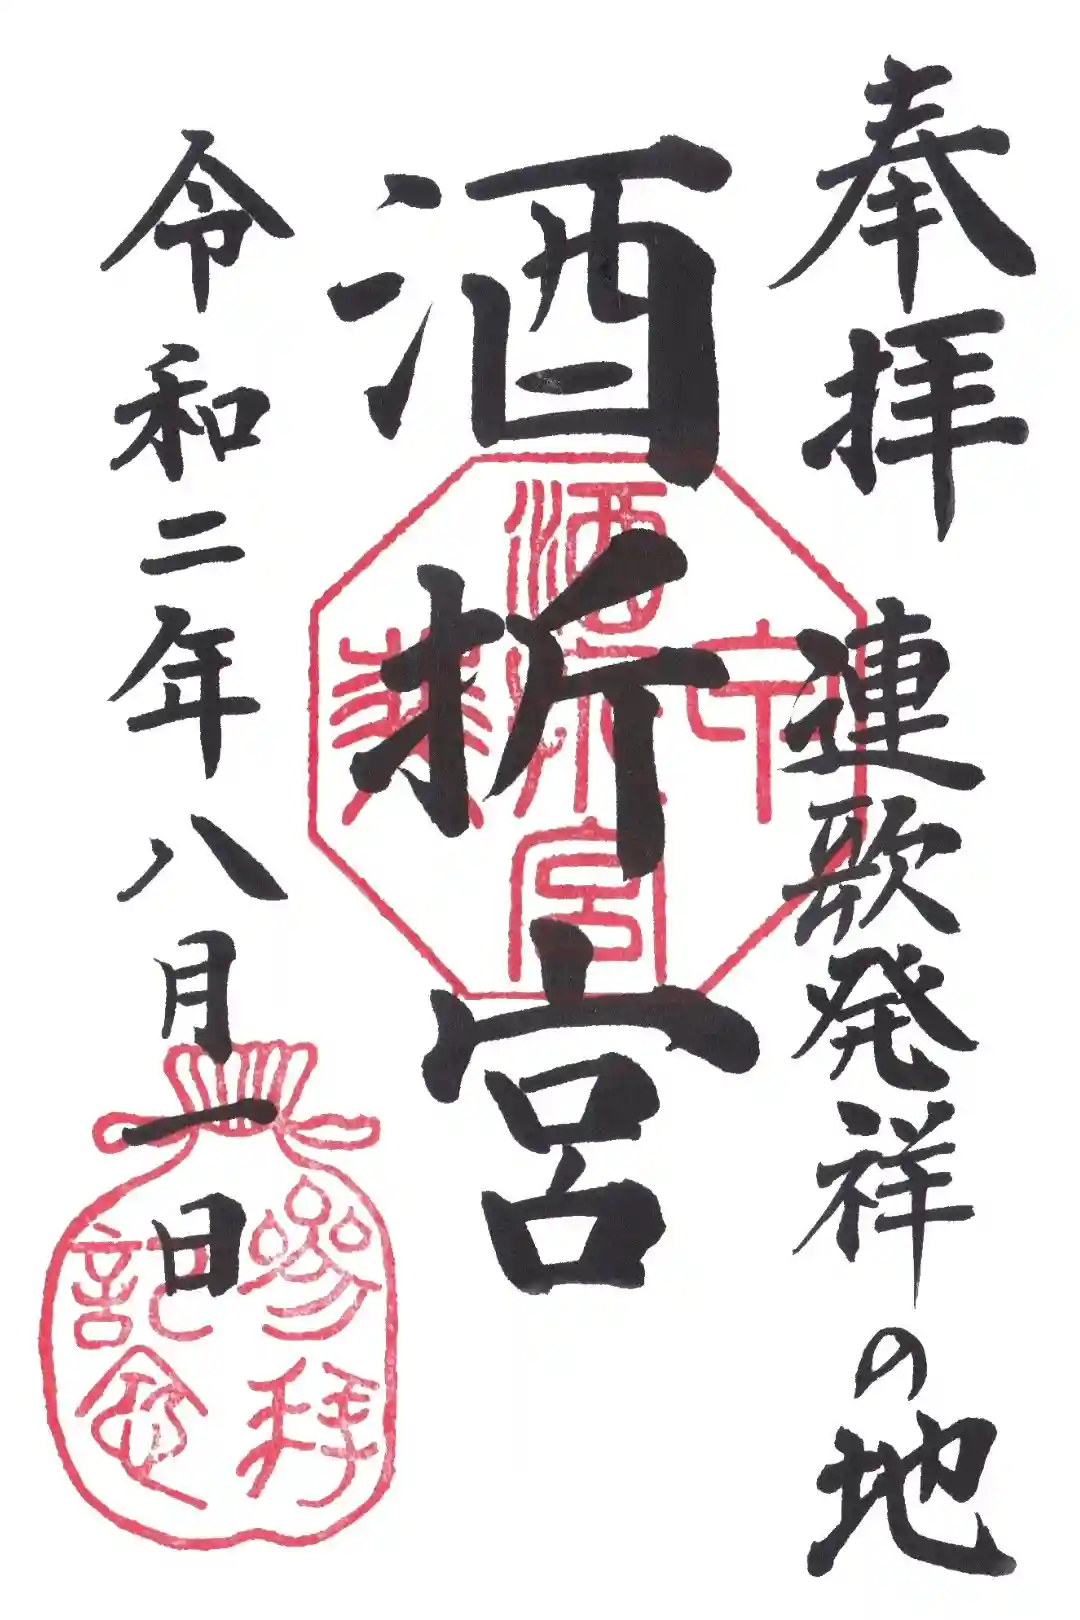 奉拝 連歌発祥の地
酒折宮
令和二年八月一日
酒折宮
参拝
記念